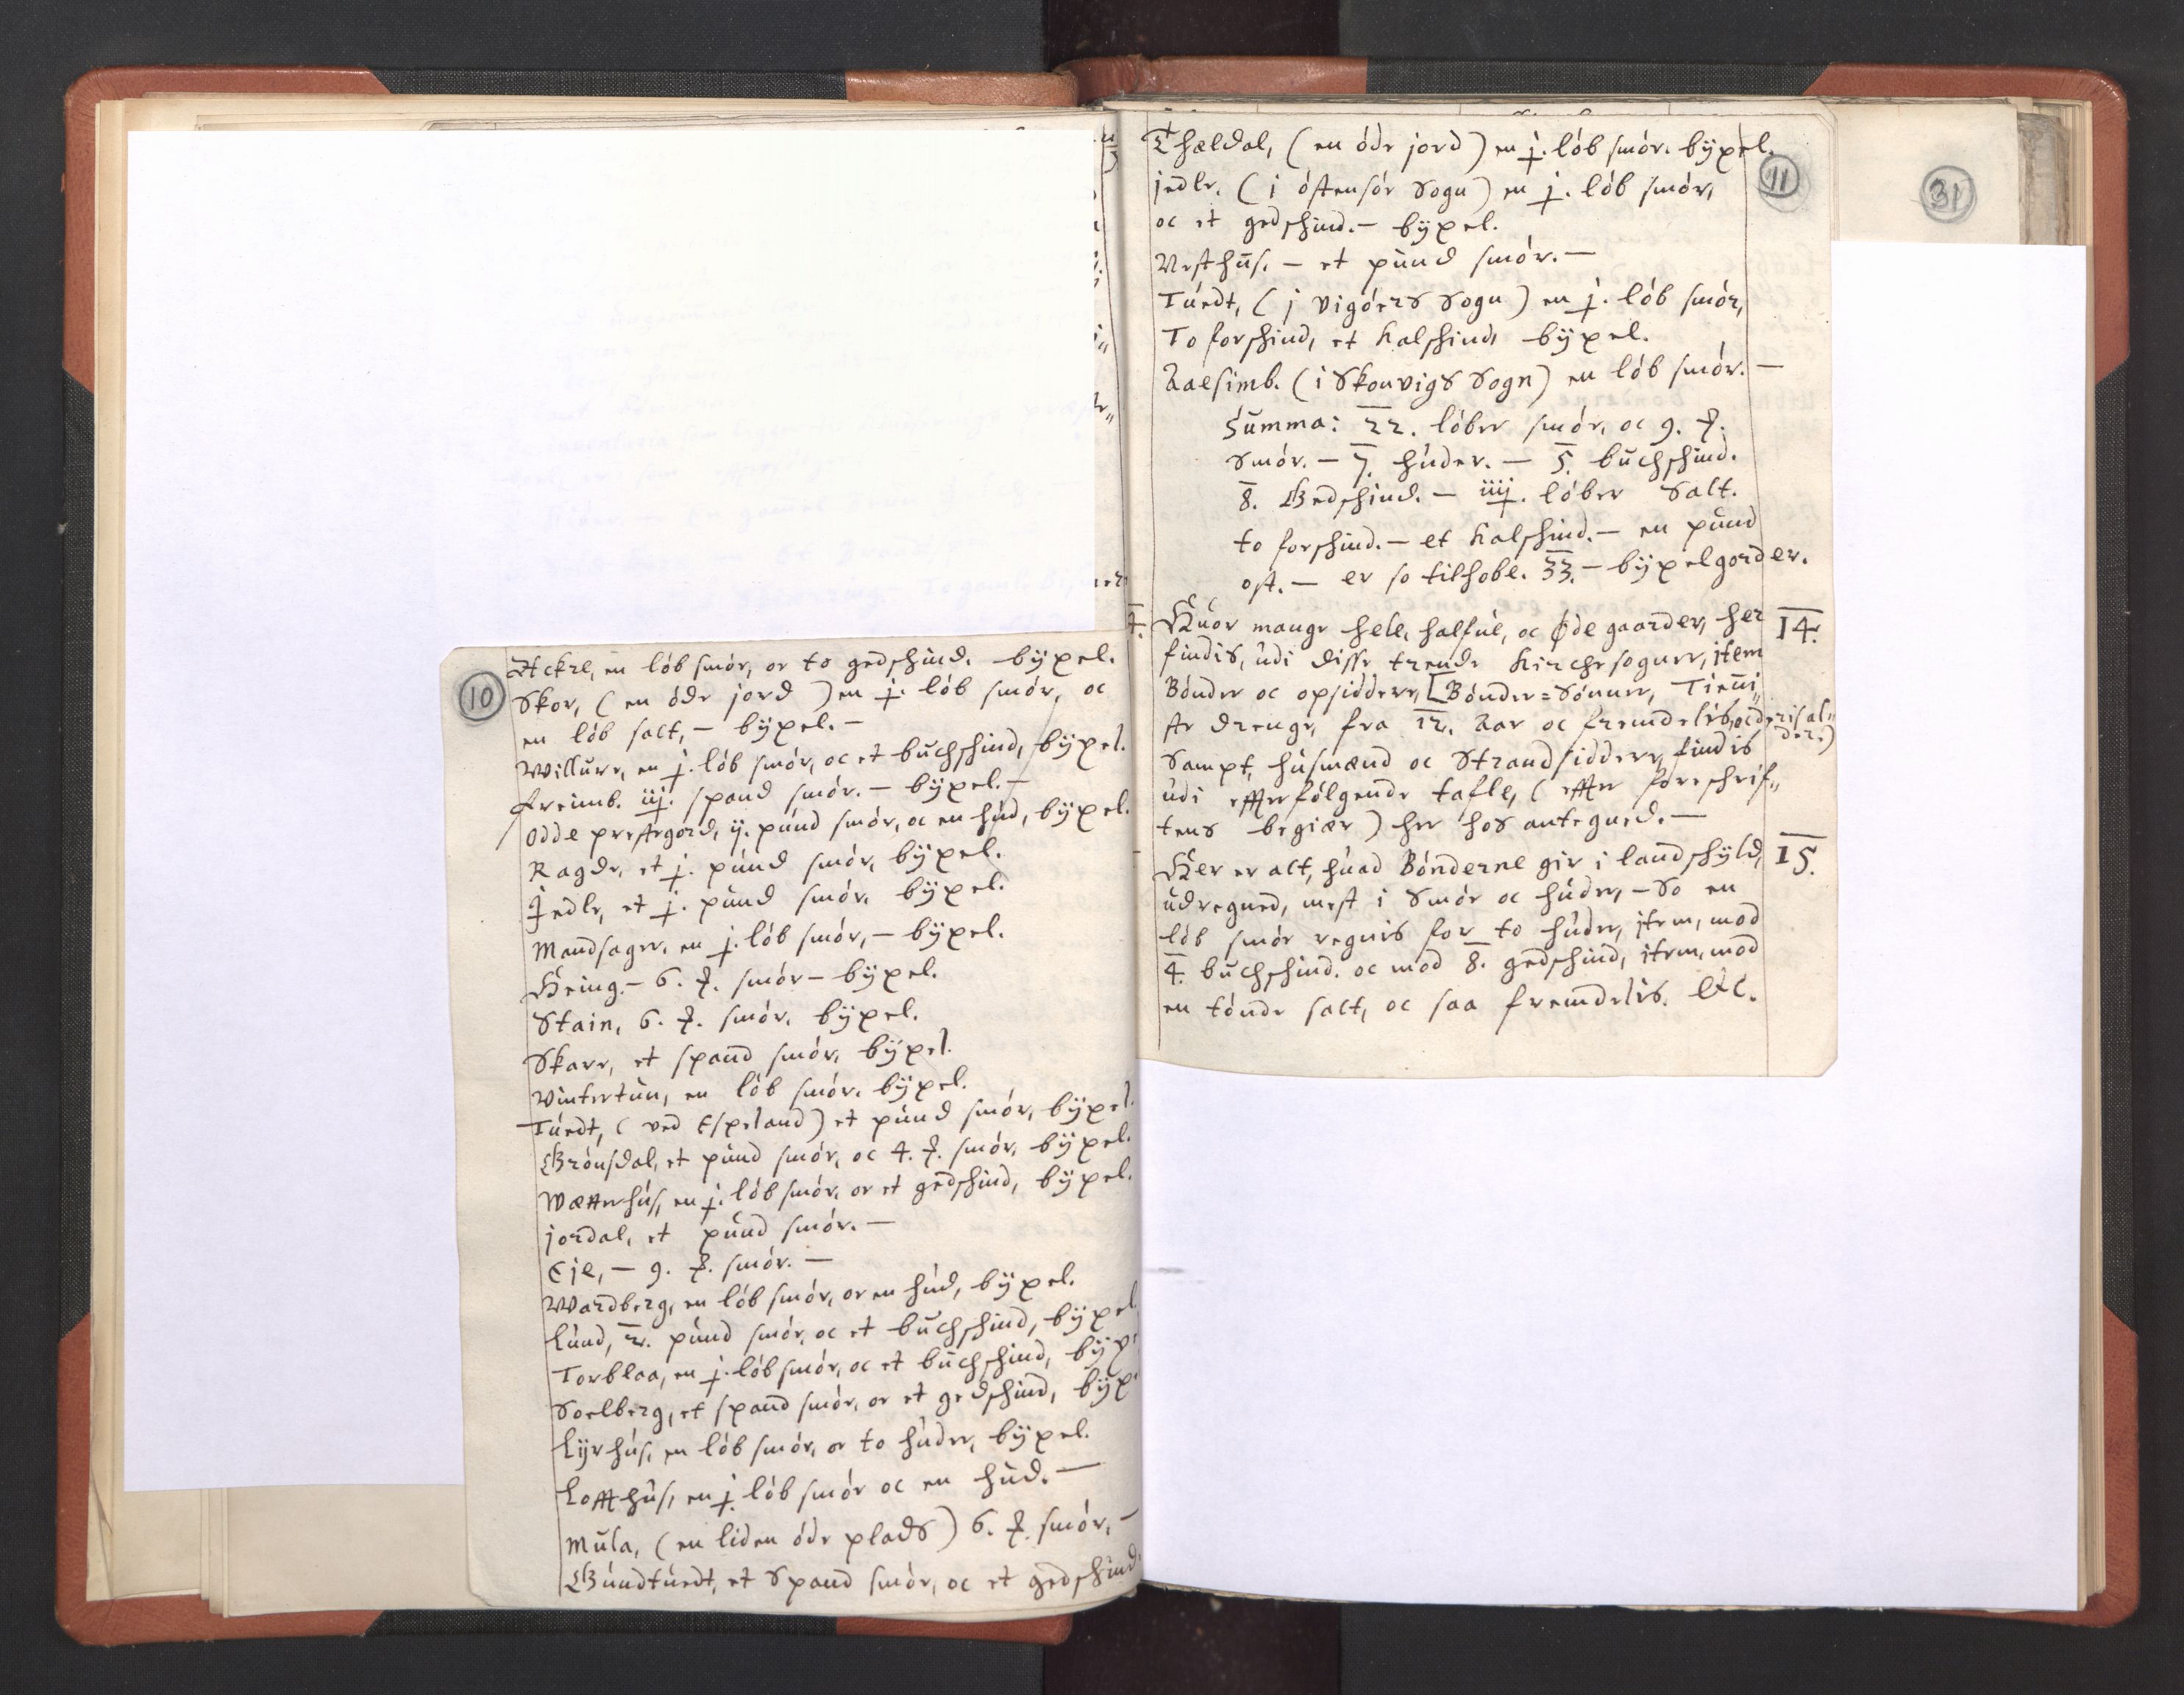 10
Ackre, en lób smór, oc to gedschind. bÿxel.
Skor, (en óde jord) en j. lób smór, oc
en lób salt, – bÿxel. –
Willure, en j. lób smór, oc et buchschind, bÿxel.
Freimb. iij. spand smór. – bÿxel. –
Odde prestegord, ij. pund smór, oc en hud, bÿxel.
Ragde, et j. pund smór, bÿxel.
Jedle, et j. pund smór, bÿxel.
Mandsager, en j. lób smór, – bÿxel.
Heing. – 6. ℔. smór – bÿxel.
Stain, 6. ℔. smór, bÿxel.
Skare, et spand smór, bÿxel.
Wintertun, en lób smór, bÿxel.
Tuedt, (ved Espeland) et pund smór, bÿxel.
Grónsdal, et pund smór, oc 4. ℔. smór, bÿxel.
Wætterhus, en j. lób smór, oc et gedschind, bÿxel.
jordal, et pund smór. –
Eje, – 9. ℔. smór. –
Wardberg, en lób smór, oc en hud, bÿxel.
Lund, 2. pund smór, oc et buchschind, bÿxel
Torblaa, en j. lób smór, oc et buchschind, bÿx
Soelberg, et spand smór, oc et gedschind, bÿx
Lÿrhus, en lób smór, oc to huder, bÿxel.
Loffthus, en j. lób smór oc en hud. –
Mula, (en liden óde plads) 6. ℔. smór, –
Gundtuedt, et Spand smór, oc et gedschind.
11
31
Thældal, (en óde jord) en j. lób smór. bÿxel.
jedle, (i óstensór Sogn) en j. lób smór,
oc et gedschind. – bÿxel.
Vesthus. – et pund smór. –
Tuedt, (j Vigórs Sogn) en j. lób smór,
To forschind, et kalschind, bÿxel.
Aaesimb. (i Skonvigs Sogn) en lób smór. –
Summa: 22. lóber smór, oc 9. ℔.
Smór. – 7. huder. – 5. buchschind.
8. Gedschind. – iiij. lóber Salt.
to forschind. – et kalschind. – en pund
ost. – er so tilhobe. 33. – bÿxelgorder.
Huor mange hele, halfue, oc øde gaarder, her 14.
findis, udi disse trende kirchesogner, item
Bónder oc opsiddere, [Bónder=Sónner, Tieni„
ste drenge, fra 12. Aar oc fremdelis, oc deris al„
der.)
Sampt, husmænd oc Strandsiddere, findis
udi effterfólgende tafle, (effter foreschrif„
tens begiær) her hos antegned. –
Her er alt, huad Bónderne gir i landschÿld, 15.
udregned, mest i Smór oc huder, – So en
lób smór regnis for to huder, item, mod
4. buchschind. oc mod 8. gedschind, item, mod
en tónde salt, oc saa fremdelis. etc.